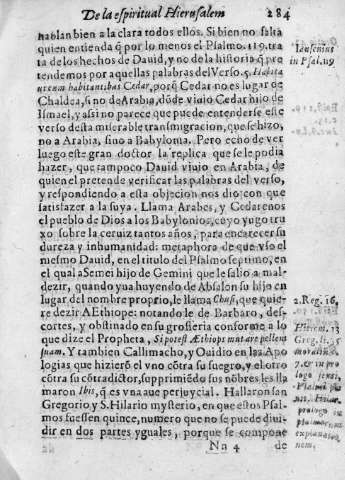 De la espiritual Hierusalem
284
hablan bien a la clara todos ellos. Si bien no falta
quien entienda q̃ por lo menos el Psalmo. 119. tra
ta de los hechos de Dauid, y no de la historia q̃ pre
tendemos por aquellas palabras del Verso. 5. Habita
cum habitantibus Cedar, porq̃ Cedar no es lugar de
Chaldea, si no de Arabia, dõde viuio Cedar hijo de
Ismael, y assi no parece que puede entenderse este
verso desta miserable transmigracion, que se hizo,
no a Arabia, sino a Babylonia. Pero echo de ver
luego este gran doctor la replica que se le podia
hazer, que tampoco Dauid viuio en Arabia, de
quien el pretende verificar las palabras del verso,
y respondiendo a esta objecion nos dio con que
satisfazer a la suya. Llama Arabes, y Cedarenos
el pueblo de Dios a los Babylonios, cuyo yugo tru
xo sobre la ceruiz tantos años, para encarecer su
dureza y inhumanidad: metaphora de que vso el
mesmo Dauid, en el titulo del Psalmo septimo, en
el qual a Semei hijo de Gemini que le salio a mal-
dezir, quando yua huyendo de Absalon su hijo en
lugar del nombre proprio, le llama Chusi, que quie-
re dezir AEthiope: notandole de Barbaro, des-
cortes, y obstinado en su grosseria conforme a lo
que dize el Propheta, Si potest AEthiops mutare pellem
suam. Y tambien Callimacho, y Ouidio en las Apo
logias que hizierõ el vno cõtra su suegro, y el otro
cõtra su cõtradictor, supprimiẽdo sus nõbres les lla
maron Ibis, q̃ es vna aue perjuycial. Hallaron san
Gregorio y S. Hilario mysterio, en que estos Psal-
mos fuessen quince, numero que no se puede diui-
dir en dos partes yguales, porque se compone
Nn 4
de
Iansenius
in Psal. 119
2. Reg. 16,
Hierem. 13
Greg. li. 35
moraliũ.
7. & in pro
logo
Psalmi
Hilar.
prologo in
psalmos
explanatio
nem.